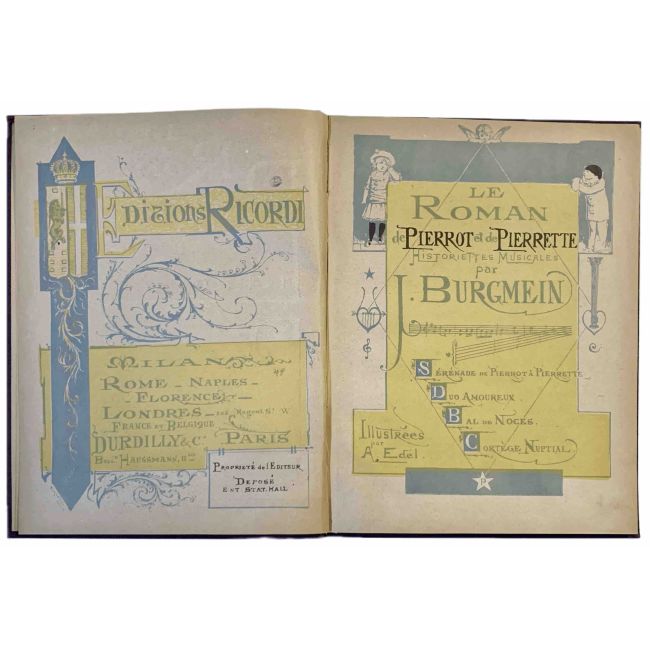 Editions Ricordi
MILAN
ROME _ NAPLES _
_ FLORENCE _
LONDRES _ 265 Regent St W
FRANCE ET BELGIQUE
DURDILLY & Cie PARIS
Bould HAUSSMANN, 11 bis
PROPRIÉTÉ de l'EDITEUR
DEPOSÉ
ENT STAT. HALL
LE
ROMAN
de PIERROT et de PIERRETTE
HISTORIETTES MUSICALES
par
J. BURGMEIN
SÉRÉNADE DE PIERROT À PIERRETTE
DUO AMOUREUX
BAL DE NOCES.
CORTÈGE NUPTIAL.
Illustrées
par
A. Edel.